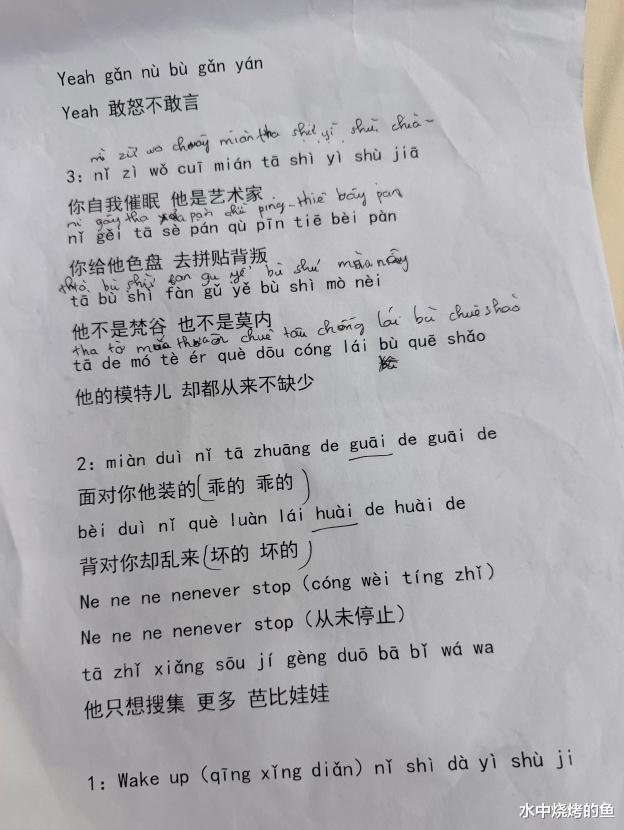 Yeah gǎn nù bù gǎn yán
Yeah 敢怒不敢言
3: nǐ zì wǒ cuī mián tā shì yì shù jiā
你自我催眠 他是艺术家
nǐ gěi tā sè pán qù pīn tiē bèi pàn
你给他色盘 去拼贴背叛
tā bù shì fàn gǔ yě bù shì mò nèi
他不是梵谷 也不是莫内
tha tờ chuê tâu chống lái bù chuê shao
tā de mó tè ér què dōu cóng lái bù quē shǎo
他的模特儿 却都从来不缺少
2: miàn duì nǐ tā zhuāng de guāi de guāi de
面对你他装的(乖的 乖的)
bèi duì nǐ què luàn lái huài de huài de
背对你却乱来(坏的 坏的)
Ne ne ne nenever stop (cóng wèi tíng zhǐ)
Ne ne ne nenever stop (从未停止)
tā zhǐ xiǎng sōu jí gèng duō bā bǐ wá wa
他只想搜集 更多 芭比娃娃
1: Wake up (qīng xǐng diǎn) nǐ shì dà yì shù ji
水中烧烤的鱼